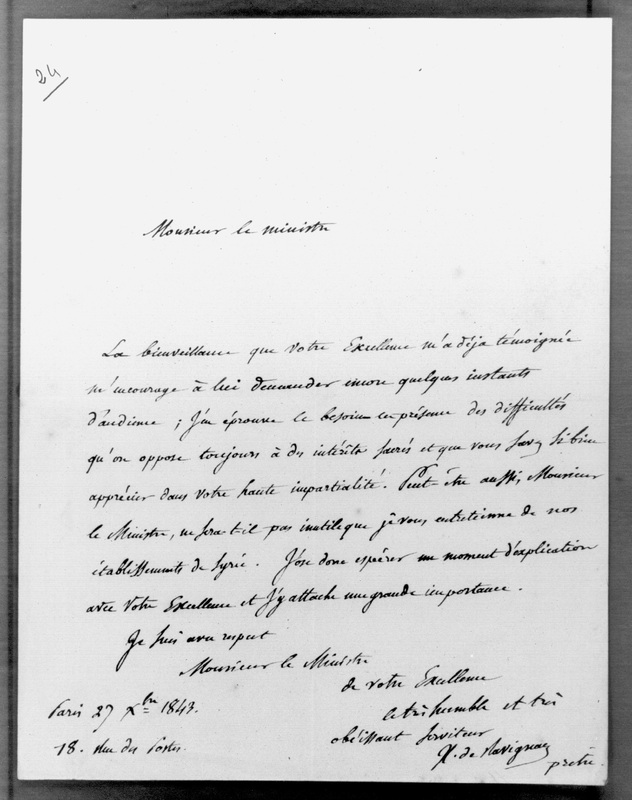 24
Monsieur le ministre
La bienveillance que Votre Excellence m'a déja témoignée
m'encourage à lui demander encore quelques instants
d'audience ; J'en éprouve le besoin en présence des difficultés
qu'on oppose toujours à des intérêts sacrés et que vous savez si bien
apprécier dans votre haute impartialité. Peut-être aussi, Monsieur
le Ministre, ne sera-t-il pas inutile que je vous entretienne de nos
établissements de Syrie. J'ose donc espérer un moment d'explication
avec Votre Excellence et J'y attache une grande importance.
Je suis avec respect
Monsieur le Ministre
de votre Excellence
le très humble et très
obéissant serviteur
X. de Ravignan
prêtre.
Paris 27 Xbre 1843.
18. rue des Postes.